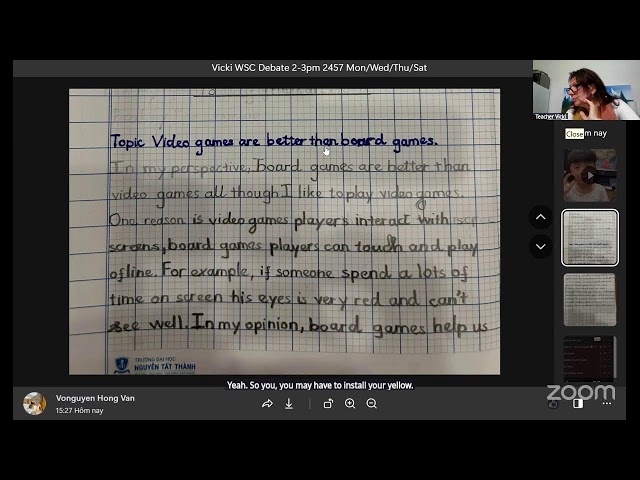 Vicki WSC Debate 2-3pm 2457 Mon/Wed/Thu/Sat
Teacher Vicki
Close
m nay
Topic Video games are better than board games.
In my perspective, board games are better than
video games all though I like to play video games.
One reason is video games players interact with
screens, board games players can touch and play
ofline. For example, if someone spend a lots of
time on screen his eyes is very red and can't
see well. In my opinion, board games help us
TRƯỜNG ĐẠI HỌC
NGUYỄN TẤT THÀNH
Yeah. So you, you may have to install your yellow.
Vonguyen Hong Van
15:27 Hôm nay
zoom